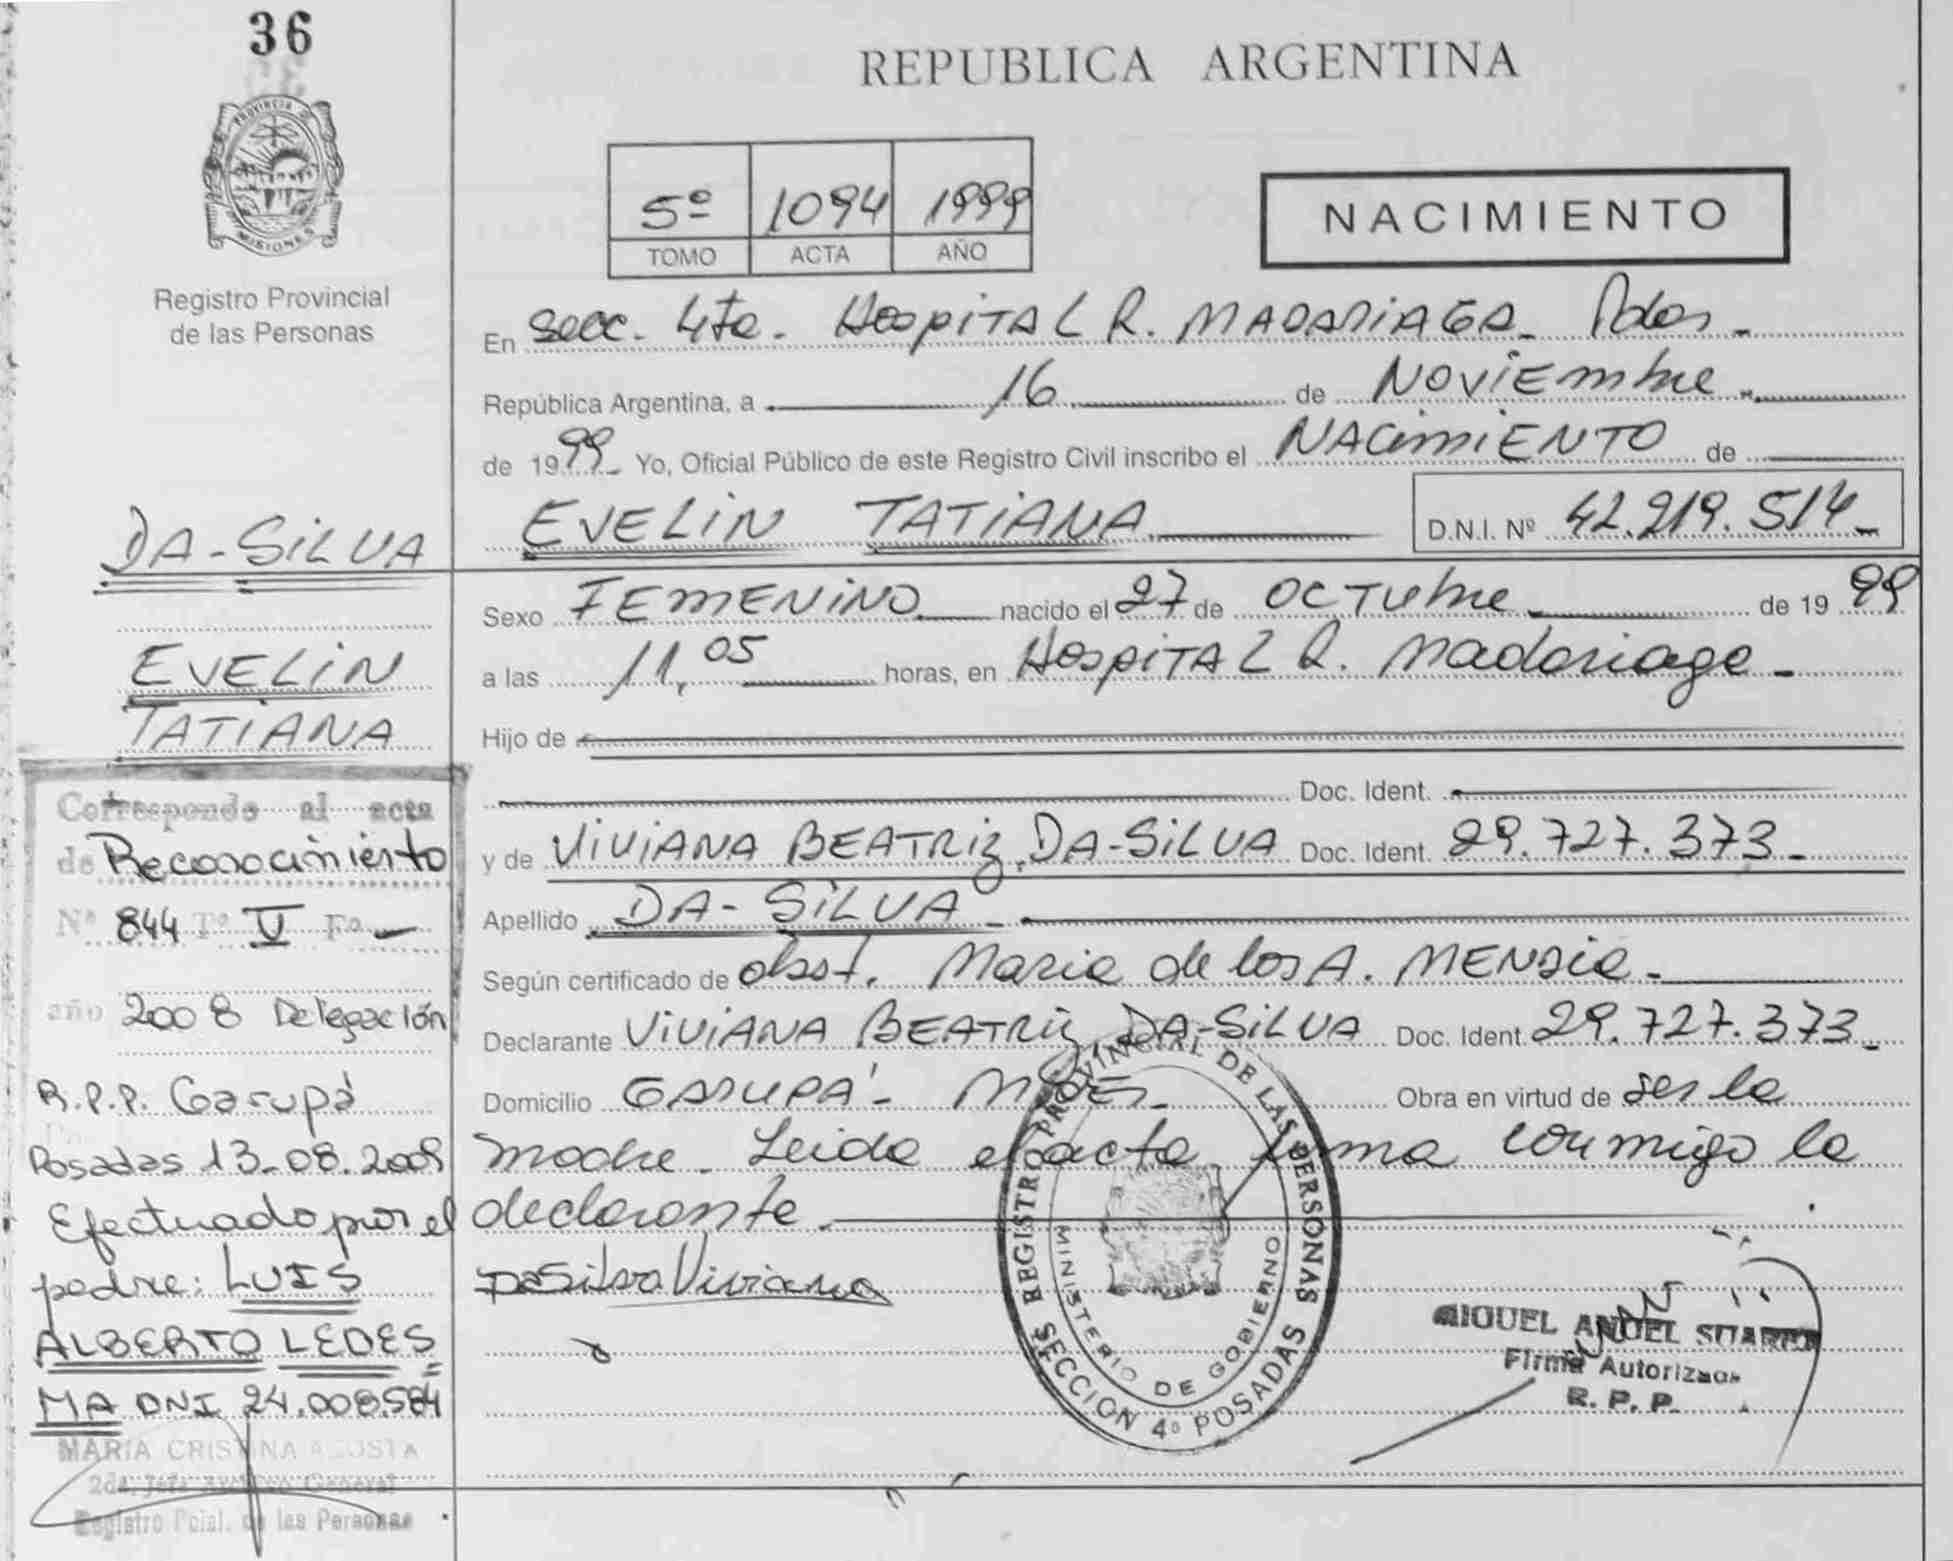 36
PROVINCIA D
MISIONES
Registro Provincial
de las Personas
DA-SILVA
EVELIN
TATIANA
Corresponde al acta
de Reconocimiento
Nº 844 Tº V Fº -
año 2008 Delegación
R.P.P. Garupá
Posadas 13-08.2009
Efectuado por el
padre: LUIS
ALBERTO LEDES
MA DNI 24.008.584
MARIA CRISTINA ACOSTA
2da. Jefa Archivo General
Registro Pcial. de las Personas
REPUBLICA ARGENTINA
5º 1094 1999
TOMO ACTA AÑO
NACIMIENTO
En Secc. 4ta. HospITAL R. MADARIAGA. Pdas.
República Argentina, a 16 de Noviembre
de 1999 Yo, Oficial Público de este Registro Civil inscribo el NACimiENTO de
EVELIN TATIANA D.N.I. Nº 42.219.514
Sexo FEMENINO nacido el 27 de OCTubre de 1999
a las 11,05 horas, en HospITAL R. Madariaga
Hijo de
Doc. Ident.
y de VIVIANA BEATRIZ DA-SILVA Doc. Ident. 29.727.373
Apellido DA-SILVA
Según certificado de obst. Maria de los A. MENDIE
Declarante VIVIANA BEATRIZ DA-SILVA Doc. Ident 29.727.373
Domicilio GARUPA' - Mnes. Obra en virtud de ser la
madre. Leida el acta firma conmigo la
declarante.
DaSilva Viviana
REGISTRO PROVINCIAL DE LAS PERSONAS
MINISTERIO DE GOBIERNO
SECCION 4º POSADAS
MIGUEL ANGEL
Firma Autorizada
R. P. P.